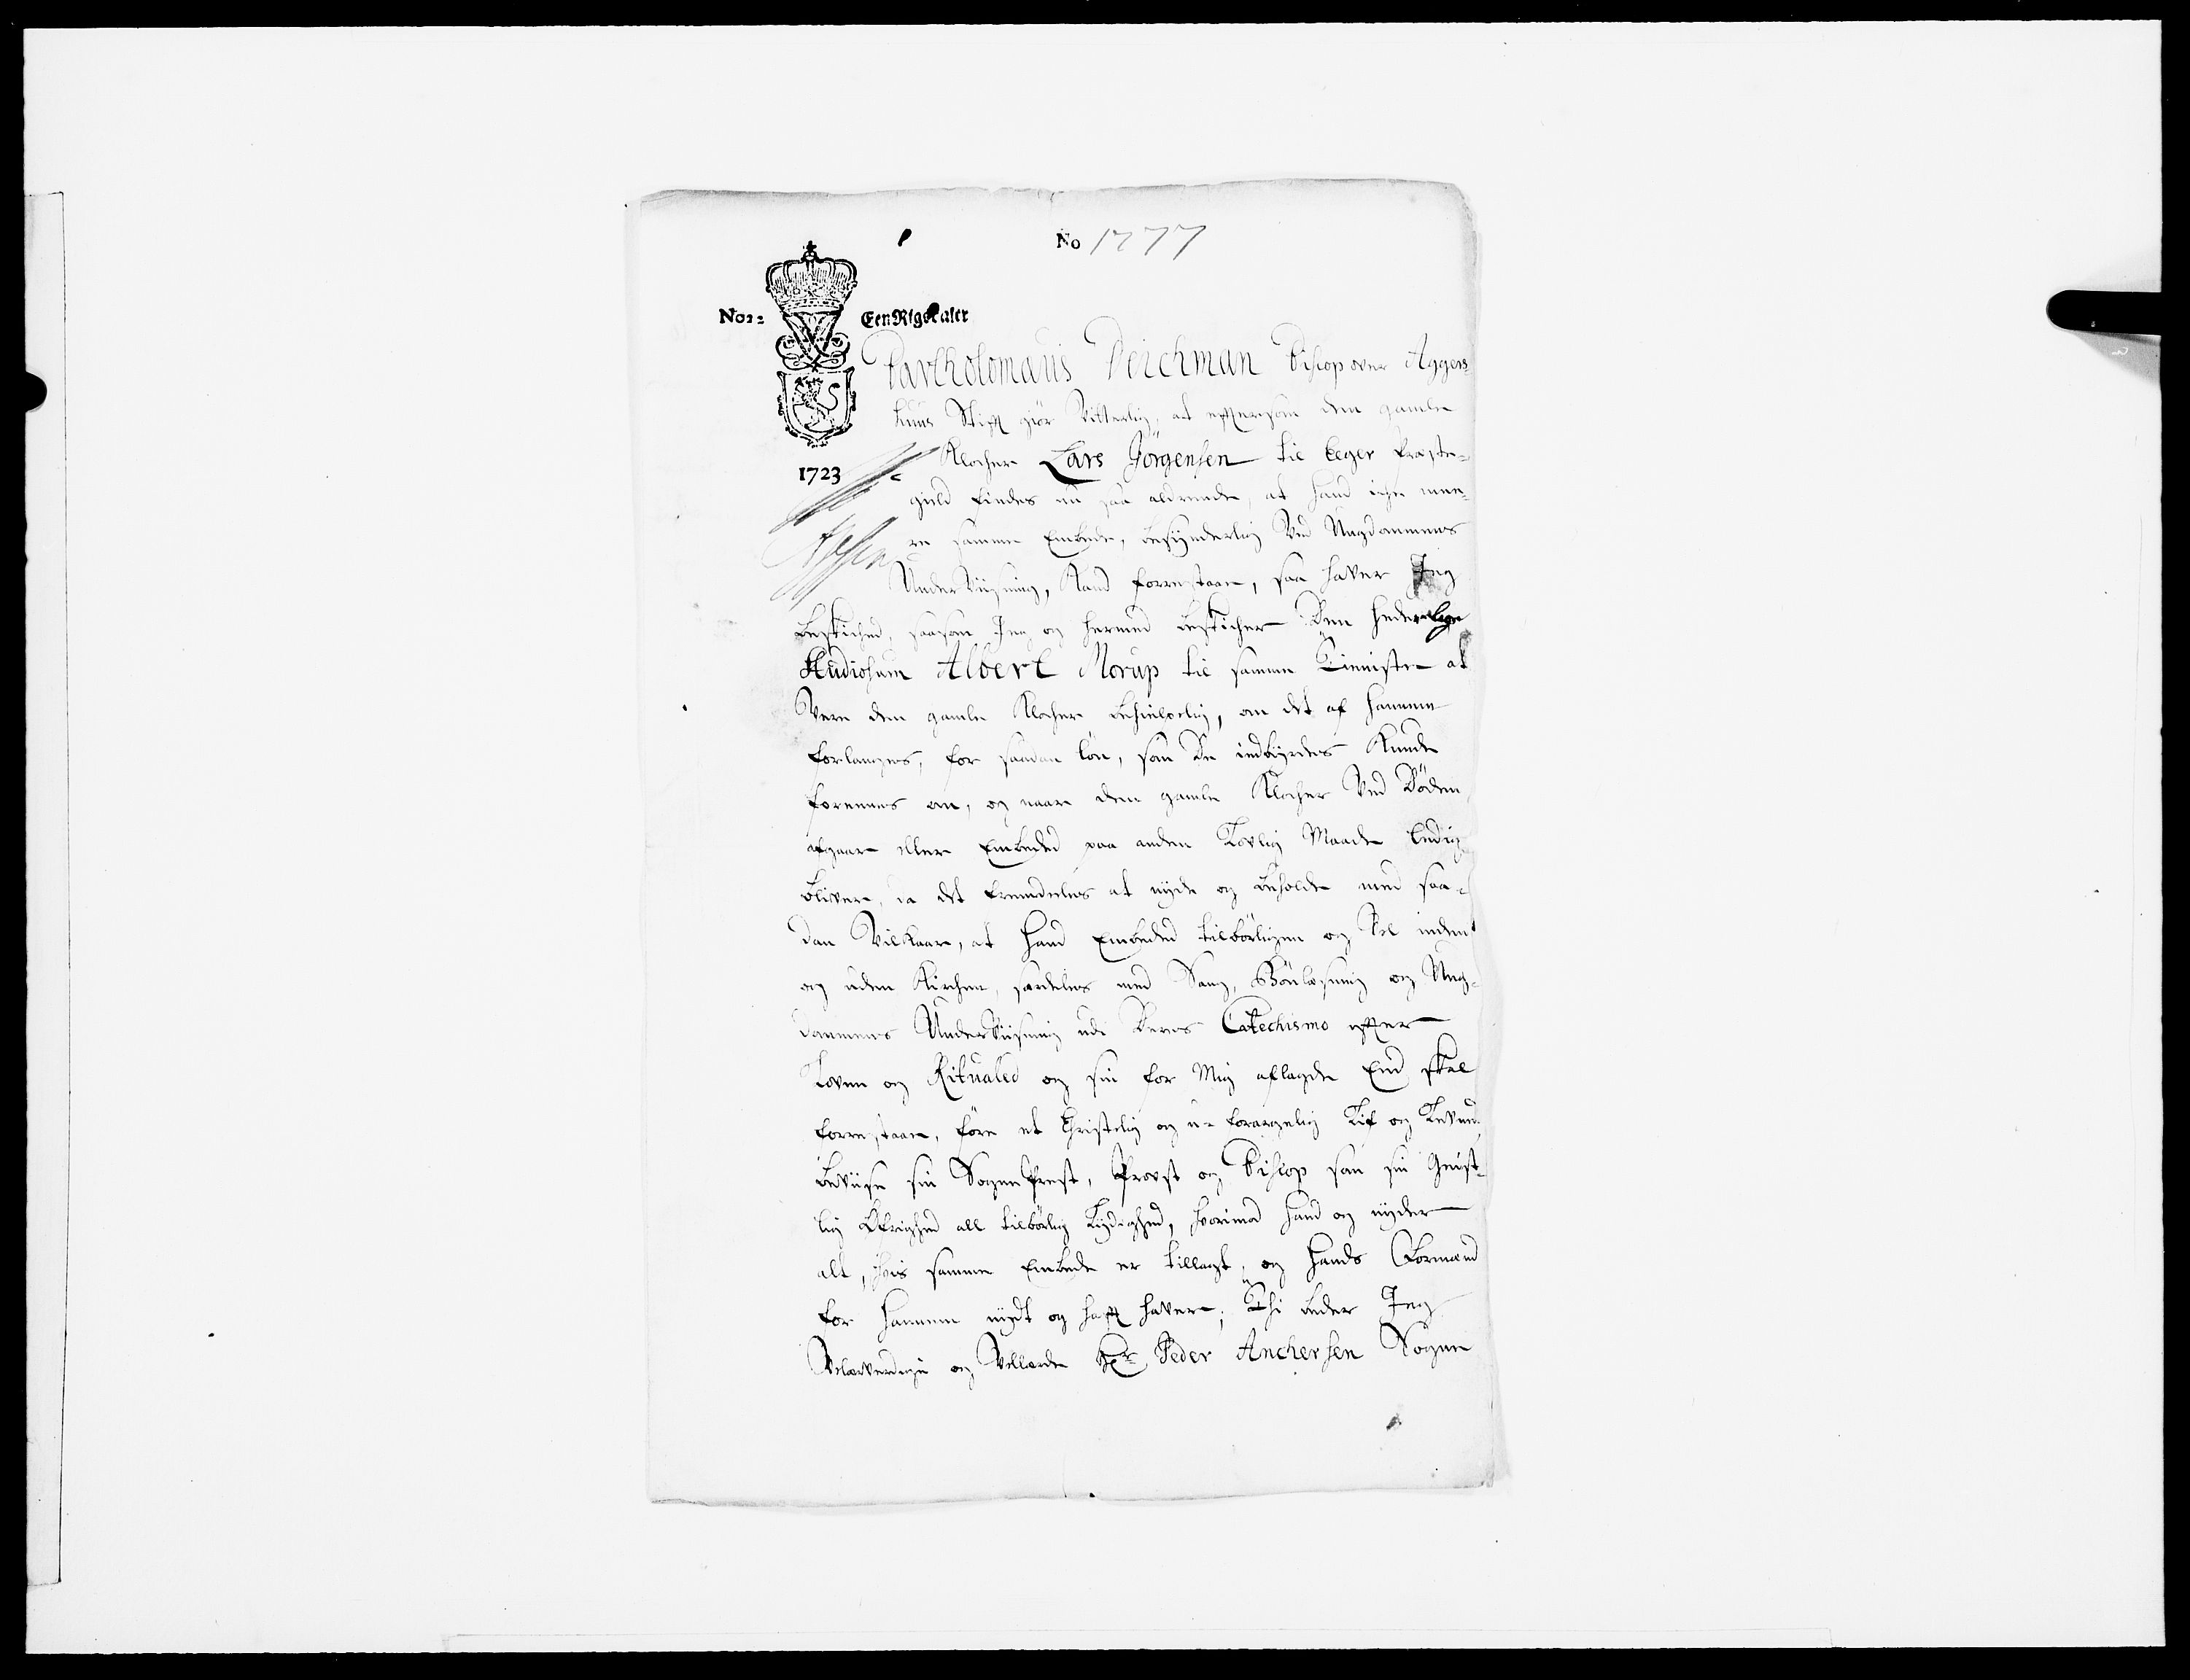 No 1777
No 2: Een Rigsdaler
Bartholomæus Deichman Biscop over Aggers
huus Stift giør Vitterlig, at eftersom den gamle
1723 Klocher Lars Jörgensen til Eeger Præste-
gield findes nu saa aldrende, at hand iche mee-
re samme Embede, besynderlig Ved Ungdommens
UnderViisning, Kand forrestaae, saa haver Jeg
beskiched, saasom Jeg og hermed beskicher Den hederlige
Studiosum Albert Morup til samme Tienniste at
Være den gamle Klocher behielpelig, om det af hannem
forlanges, for saadan lön, som De indbyrdes Kunde
foreenes om, og naar den gamle Klocher Ved Döden
afgaar eller Embeded paa anden Lovlig Maade ledig
bliver, da det fremdeles at nyde og beholde med saa-
dan Vilkaar, at Hand Embeded tilbörligen og Vel inden
og uden Kirchen, særdeles med Sang, Bönlæsning og Ung-
dommens UnderViisning udi Deres Catechismo efter
Loven og Ritualed og sin for Mig aflagde Eed skal
forrestaae, före et Christelig og u-forargelig Lif og Levned,
beviise sin SognePrest, Provst og Biscop som sin Geist-
lig Öfrighed all tilbörlig Lydighed, hvorimod hand og nyder
alt, hvis samme Embede er tillagt, og hands Formænd
for hannem nydt og haft haver; Thi beder Jeg
Velærværdige og Vellærde Hr Peder Anchersen Sogne